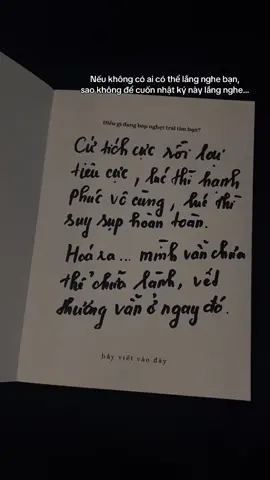 Nếu không có ai có thể lắng nghe bạn,
sao không để cuốn nhật ký này lắng nghe...
Điều gì đang bóp nghẹt trái tim bạn?
Cứ tích cực rồi lại
tiêu cực, lúc thì hạnh
phúc vô cùng, lúc thì
suy sụp hoàn toàn.
Hoá ra... mình vẫn chưa
thể chữa lành, vết
thương vẫn ở ngay đó.
hãy viết vào đây